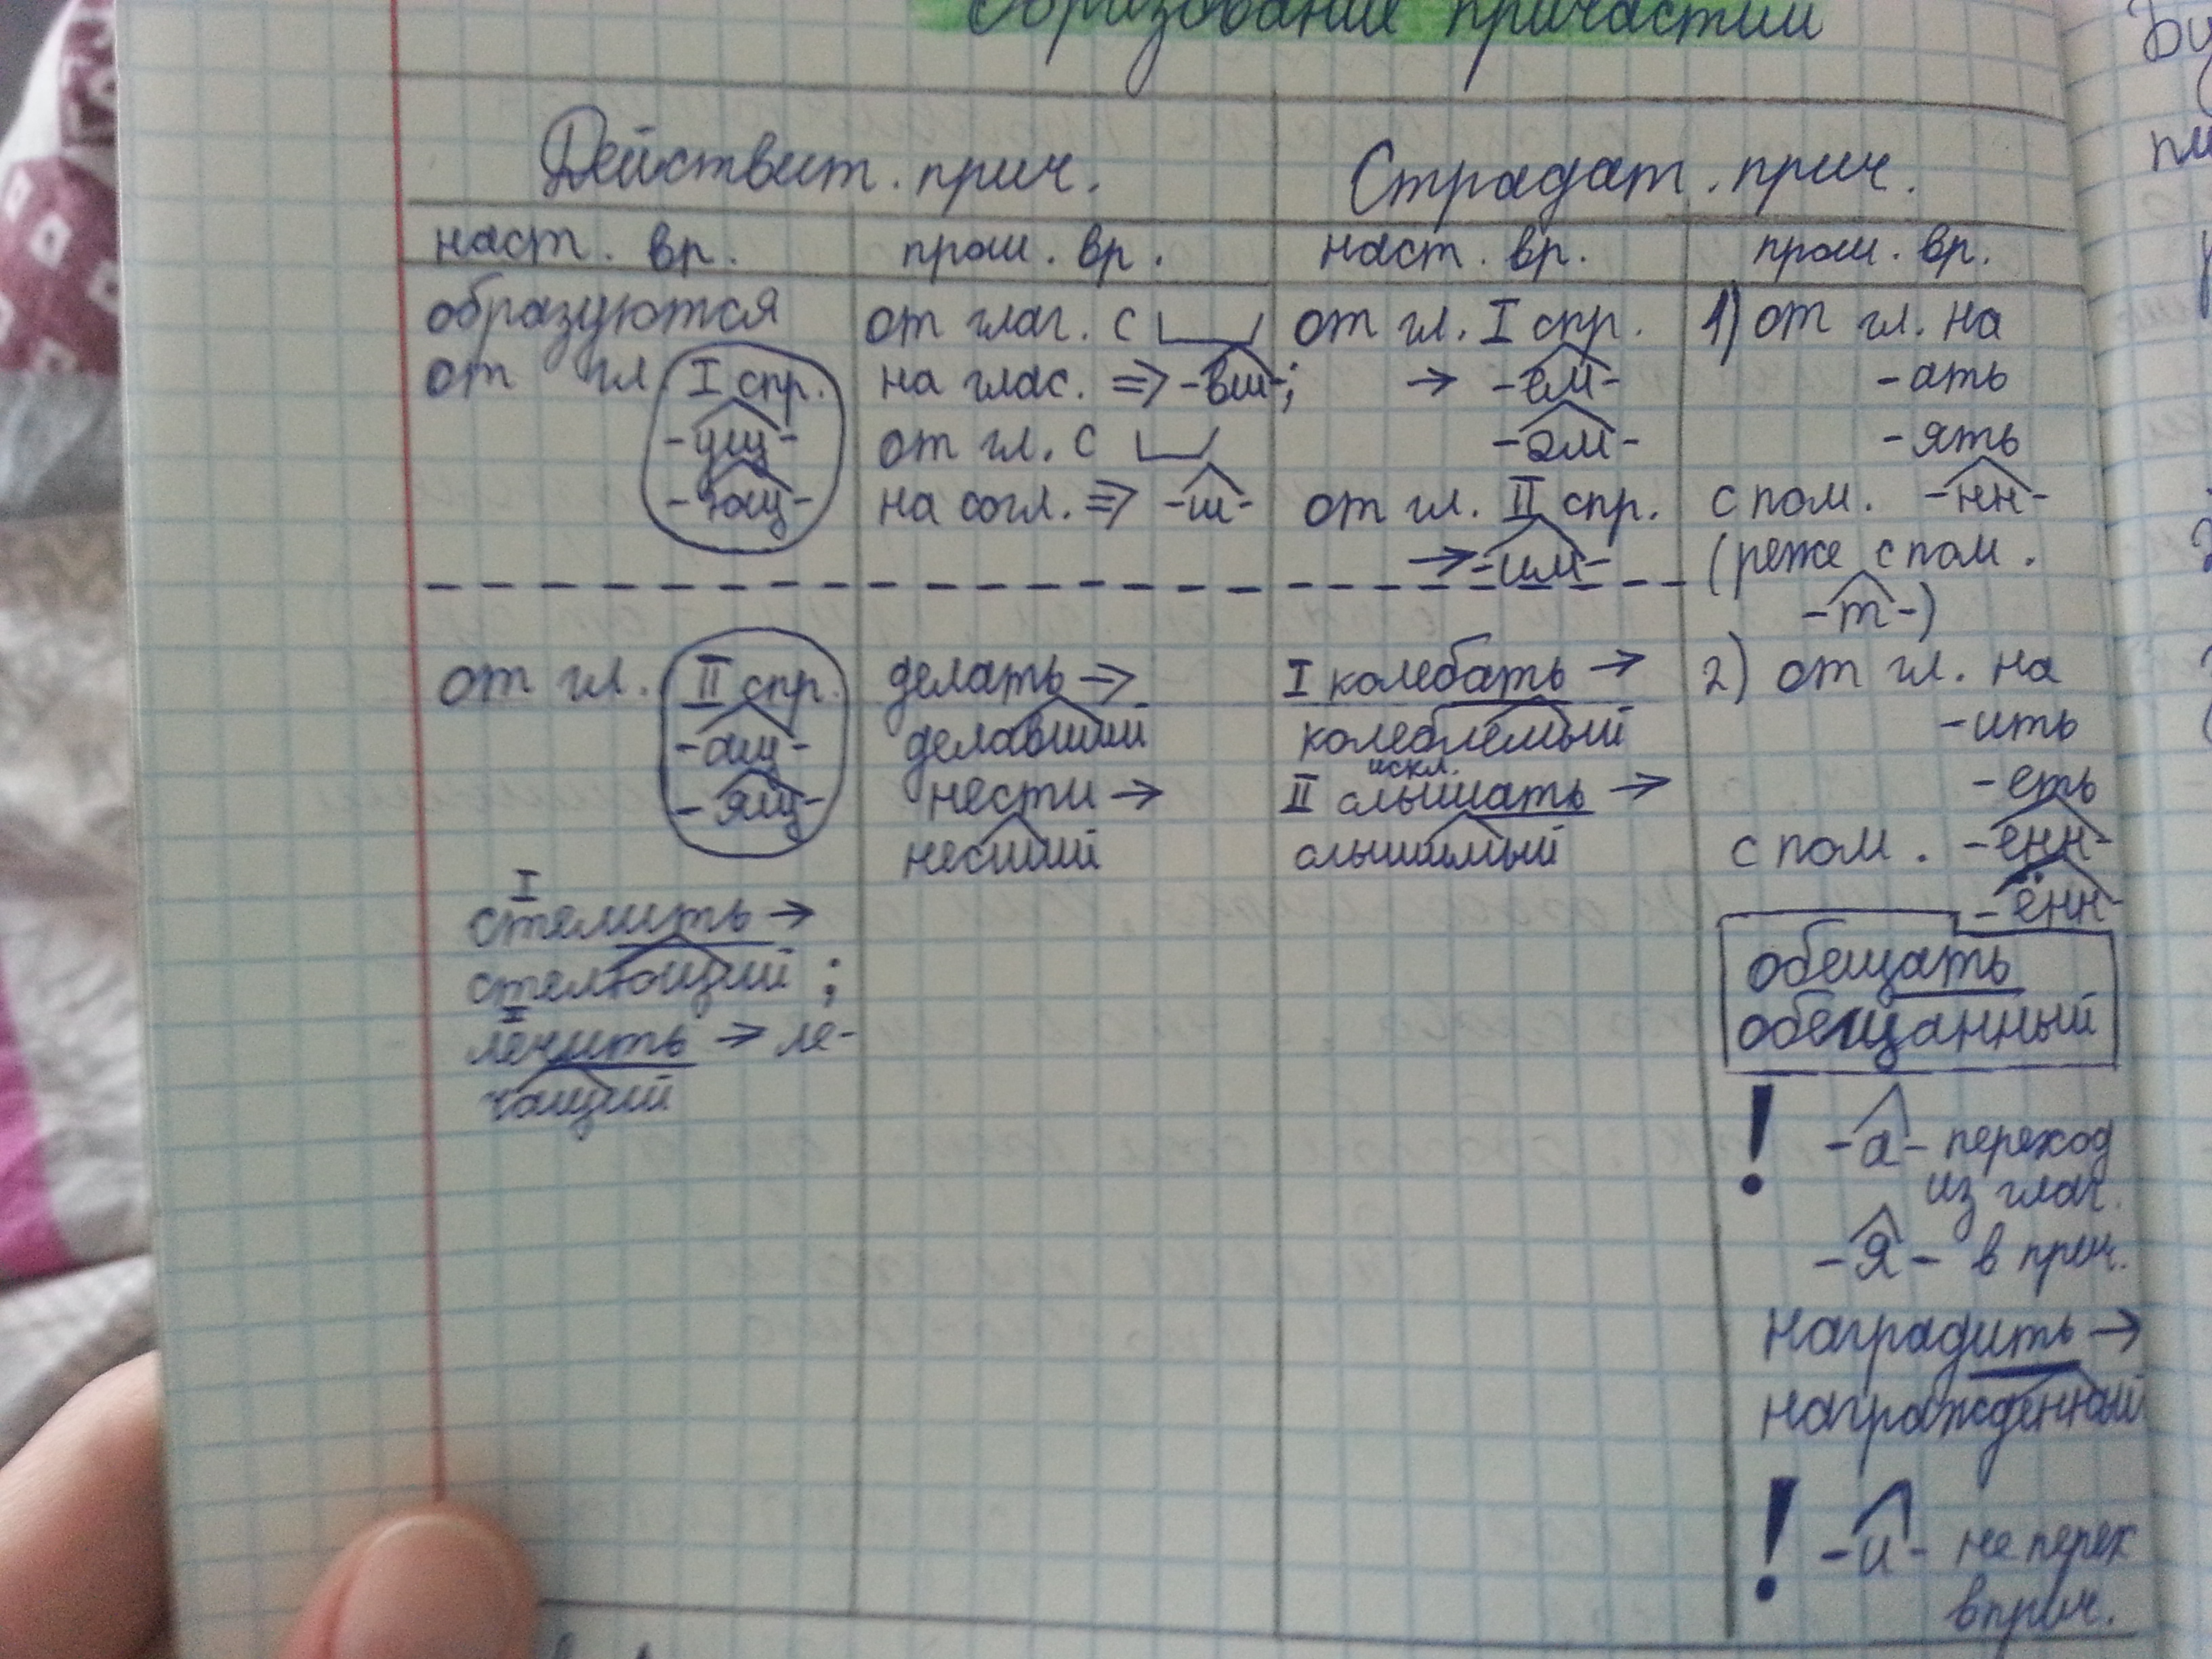 Образование причастий
Действит. прич.
Страдат. прич.
наст. вр.
прош. вр.
наст. вр.
прош. вр.
образуются
от гл I спр.
-ущ-
-ющ-
от гл. II спр.
-ащ-
-ящ-
I
стелить →
стелющий ;
I
лечить → ле-
чащий
от глаг. с
на глас. => -вш-;
от гл. с
на согл. => -ш-
делать →
делавший
нести →
несший
от гл. I спр.
→ -ем-
-ом-
от гл. II спр.
→ -им-
I колебать →
колеблемый
искл.
II слышать →
слышимый
1) от гл. на
-ать
-ять
с пом. -нн-
(реже с пом.
-т-)
2) от гл. на
-ить
-еть
с пом. -енн-
-ённ-
обещать
обещанный
! -а- переход
из глаг.
-я- в прич.
наградить →
награжденный
! -и- не перех
в прич.